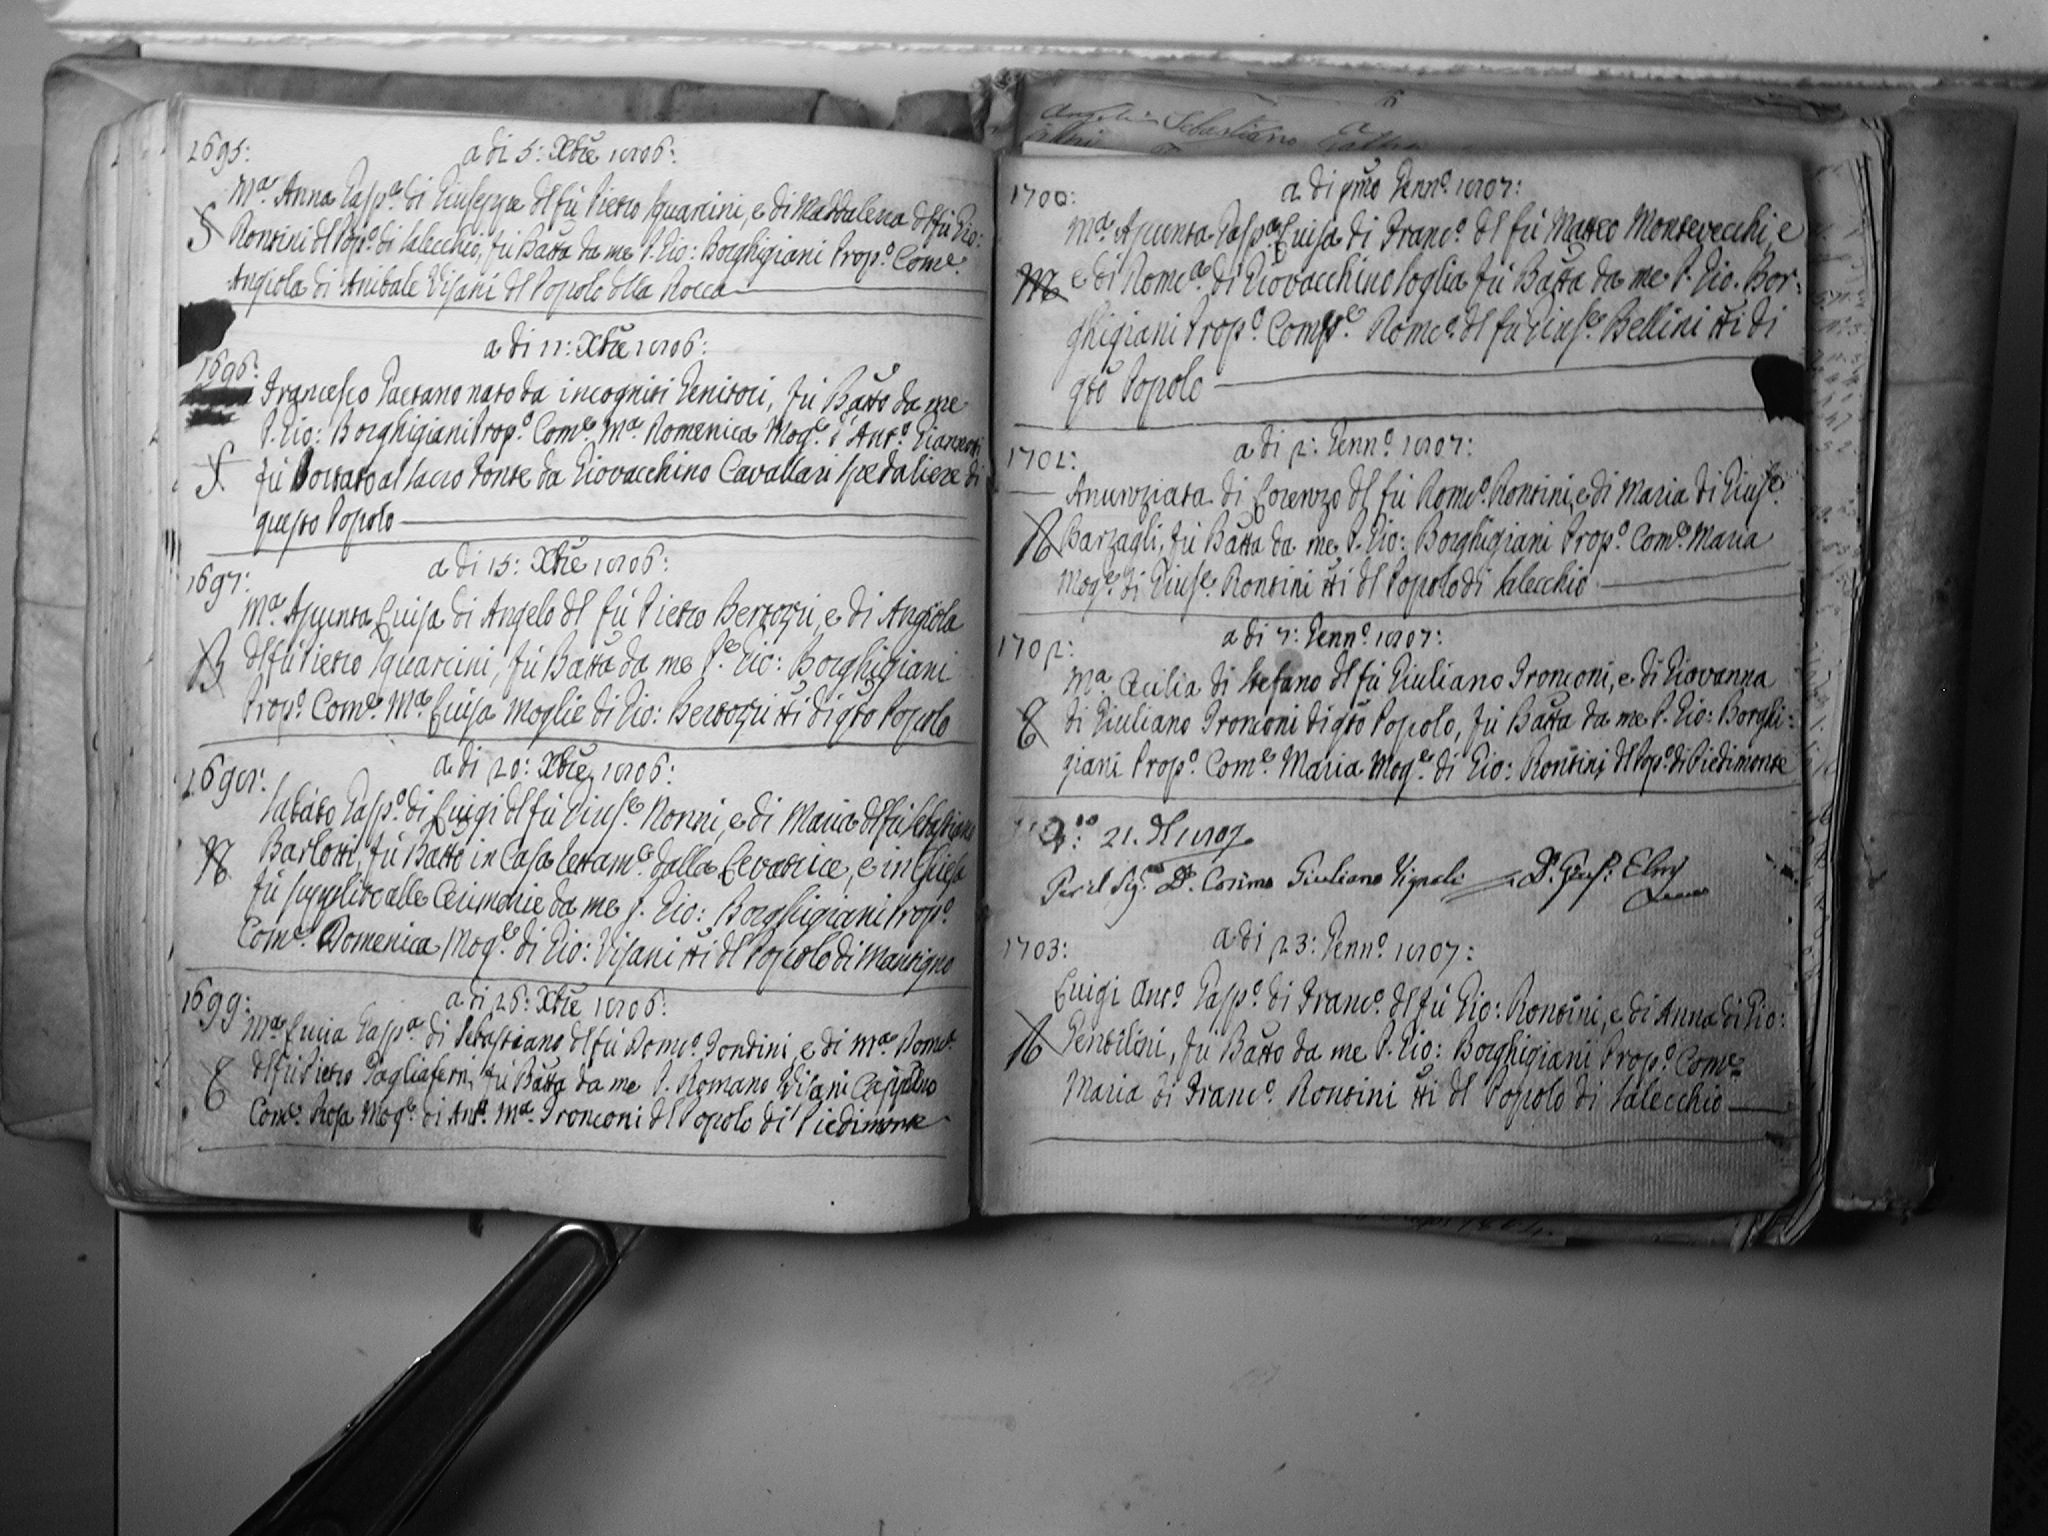 1695:
a di 5: Xbre 1806:
Ma. Anna Gasp.a di Giuseppe dl fù Pietro Squarcini, e di Maddalena dl fù Gio:
Rontini dl Pop.o di Salecchio, fù Batta da me P. Gio: Borghigiani Prop.o Com.e
Angiola di Anibale Visani dl Popolo dlla Rocca
a di 11: Xbre 1806:
1696:
Francesco Gaetano nato da incogniti Genitori, fù Batto da me
P. Gio: Borghigiani Prop.o Com.e Ma. Domenica Mog.e d'Ant.o
fù Portato al sacro Fonte da Giovacchino Cavallari Spedaliere di
questo Popolo
a di 15: Xbre 1806:
1697:
Ma. Assunta Luisa di Angelo dl fù Pietro Bertozzi, e di Angiola
dl fù Pietro Squarcini, fù Batta da me P.e Gio: Borghigiani
Prop.o Com.e Ma. Luisa Moglie di Gio: Bertozzi tti di qsto Popolo
1698:
a di 20: Xbre 1806:
Sabato Gasp.o di Luigi dl fù Gius.e Nonni, e di Maria dl fù Sebastiano
Barlotti, fù Batto in Casa dalla Levatrice, e in Chiesa
fù supplito alle Cerimonie da me P. Gio: Borghigiani Prop.o
Com.e Domenica Mog.e di Gio: Visani tti dl Popolo di Mantigno
1699:
a di 26: Xbre 1806:
Ma. Lucia Gasp.a di Sebastiano dl fù Dom.co Fontini, e di Ma. Dom.ca
dl fù Pietro Tagliaferri, fù Batta da me P. Romano Visani Cappellno
Com.e Rosa Mog.e di Ant.o Ma. Tronconi dl Popolo di Piedimonte
1700:
a di pmo Genn.o 1807:
Ma. Assunta Gasp.a Luisa di Franc.o dl fù Matteo Montevecchi, e
e di Dom.ca di Giovacchino Soglia fù Batta da me P. Gio. Bor-
ghigiani Prop.o Com.e Dom.co dl fù Gius.e Bellini tti di
qsto Popolo
1701:
a di 2: Genn.o 1807:
Anunziata di Lorenzo dl fù Dom.co Rontini, e di Maria di Gius.e
Barzagli, fù Batta da me P. Gio: Borghigiani Prop.o Com.e Maria
Mog.e di Gius.e Rontini tti dl Popolo di Salecchio
1702:
a di 7: Genn.o 1807:
Ma. Cecilia di Stefano dl fù Giuliano Tronconi, e di Giovanna
di Giuliano Tronconi di qsto Popolo, fù Batta da me P. Gio: Borghi-
giani Prop.o Com.e Maria Mog.e di Gio: Rontini dl Pop.o di Piedimonte
21. dl 1807
Per il Sig.re Dr. Cosimo Giuliano Vignoli
1703:
a di 23: Genn.o 1807:
Luigi Ant.o Gasp.o di Franc.o dl fù Gio: Rontini, e di Anna di Gio:
Gentilini, fù Batto da me P. Gio: Borghigiani Prop.o Com.e
Maria di Franc.o Rontini tti dl Popolo di Salecchio